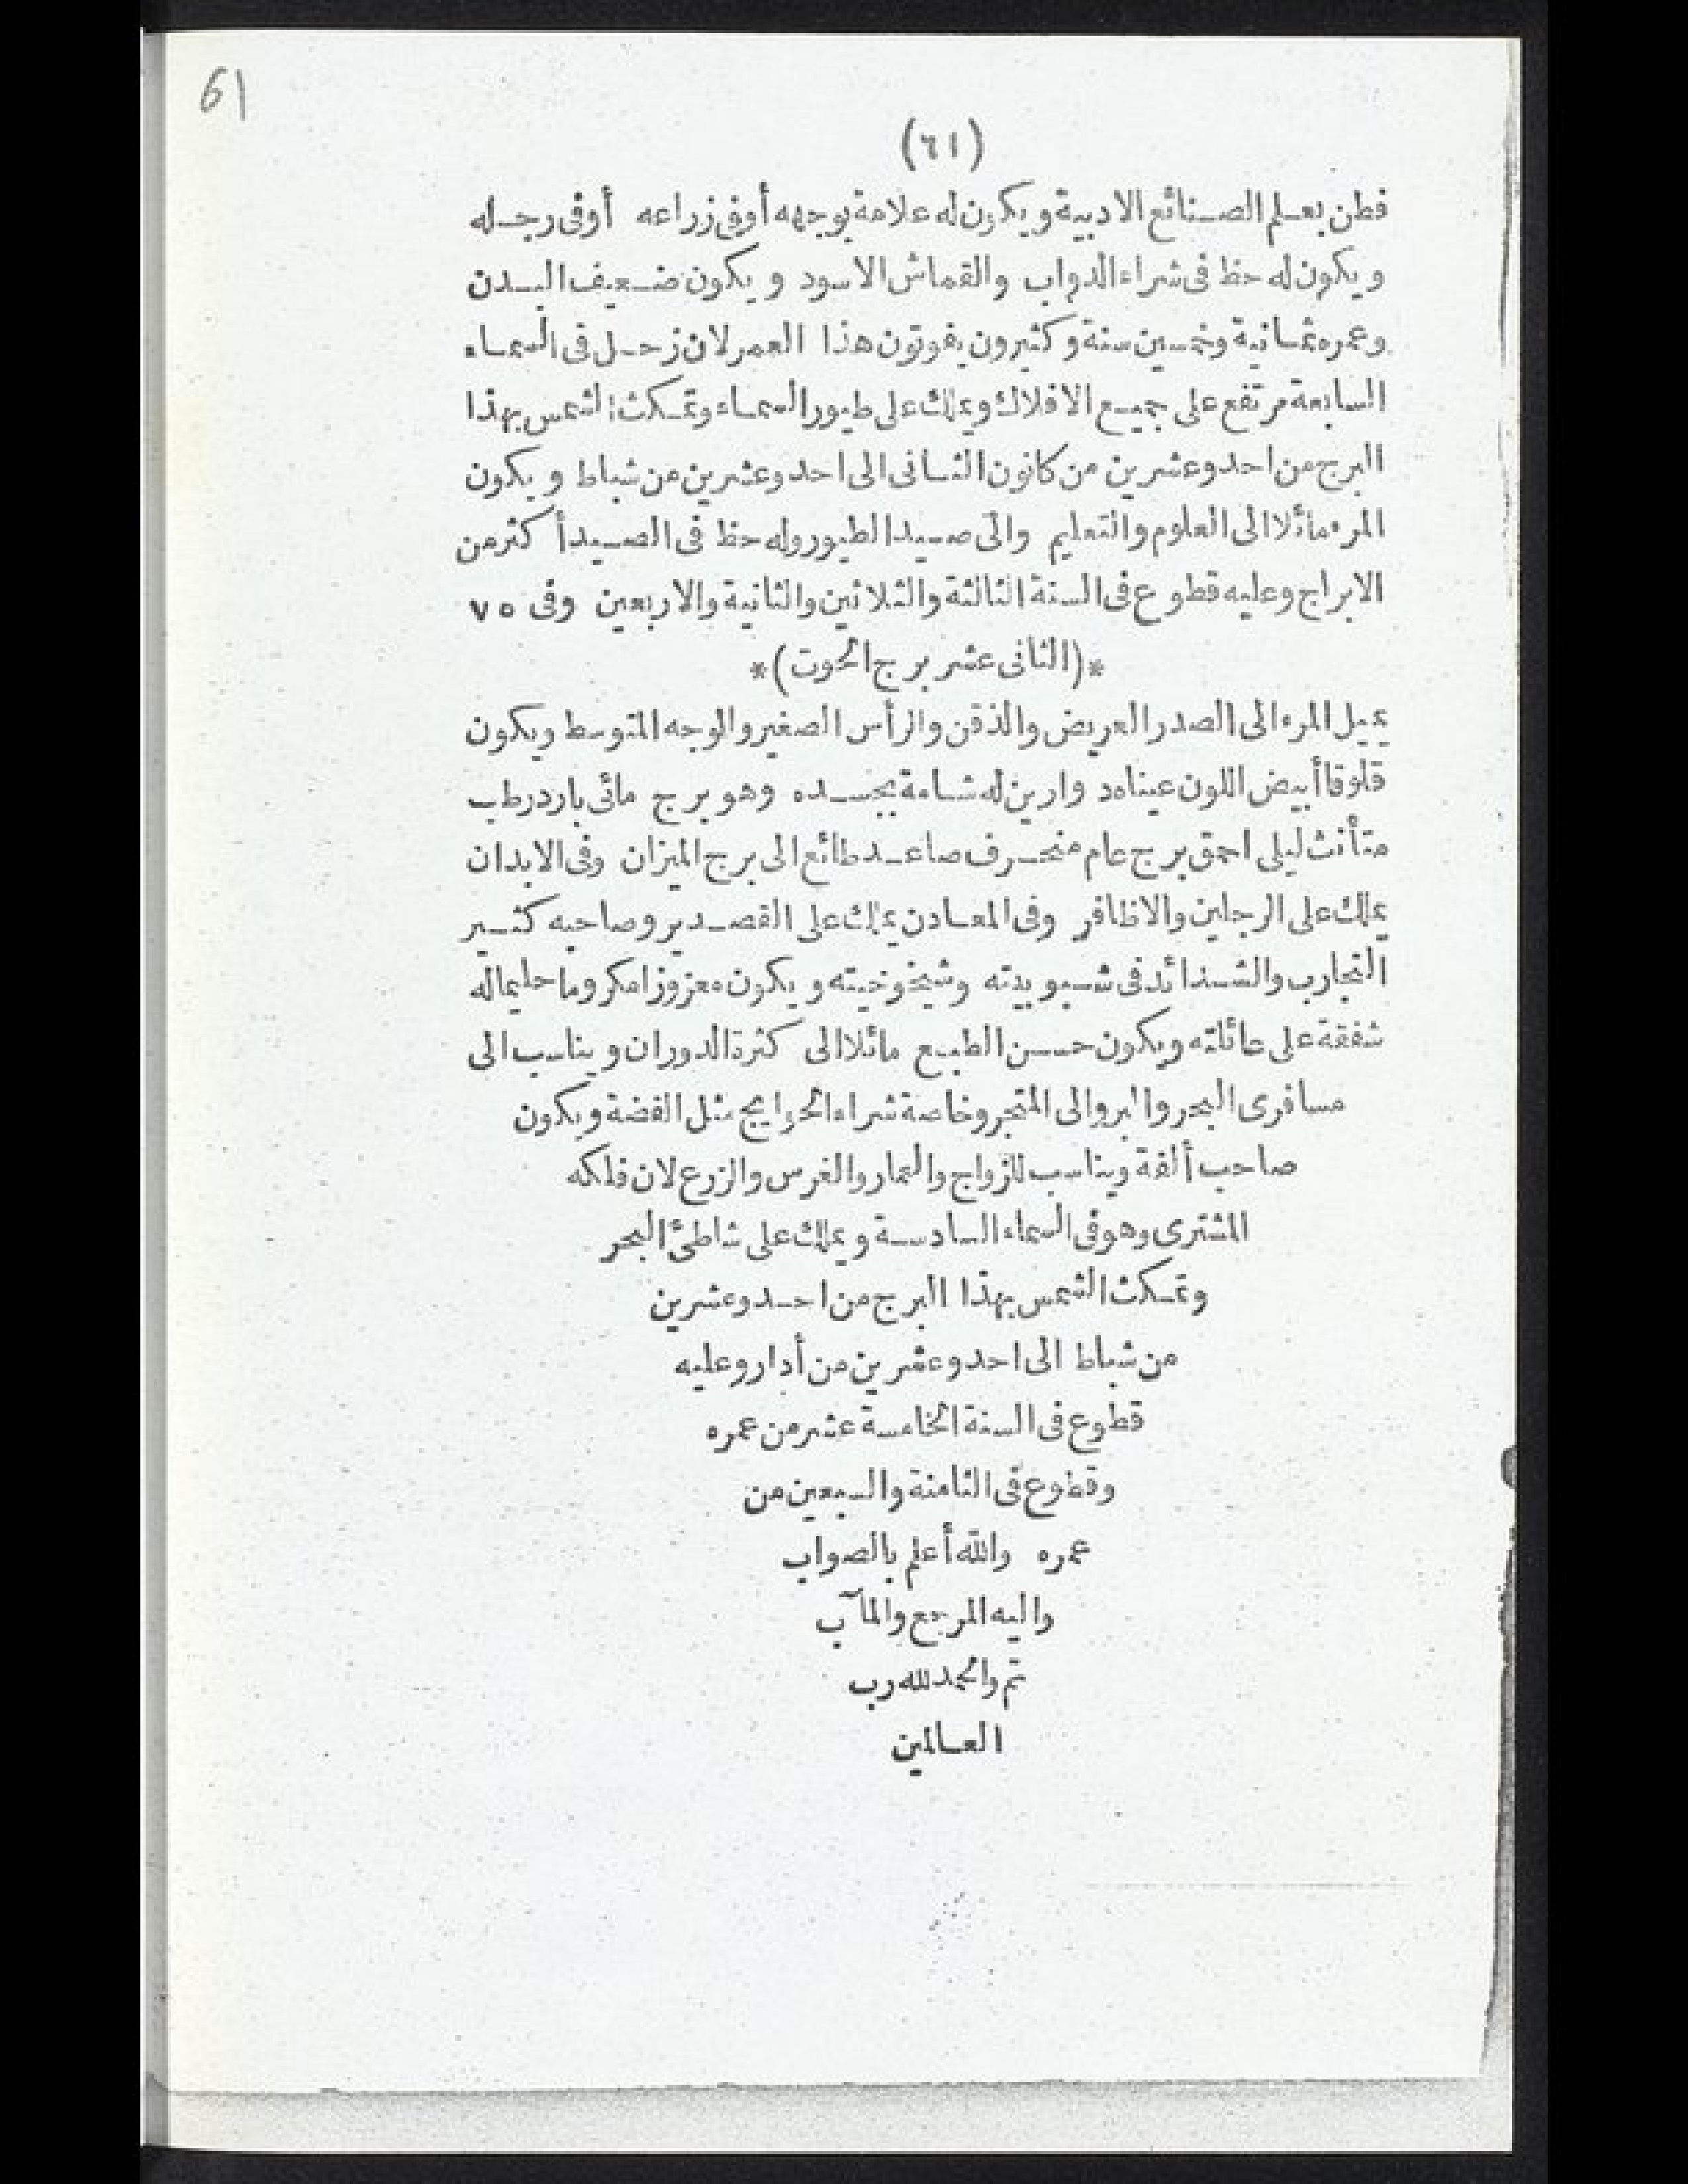 61
(٦١)
فطن بعلم الصنائع الادبية ويكون له علامة بوجهه أوفى زراعه أوفى رجله
ويكون له حظ فى شراء الدواب والقماش الاسود ويكون ضعيف البدن
وعمره ثمانية وخمسين سنة وكثيرون يفوتون هذا العمر لان زحل فى السماء
السابعة مرتفع على جميع الافلاك ويملك على طيور السماء وتمكث الشمس بهذا
البرج من احد وعشرين من كانون الثانى الى احد وعشرين من شباط ويكون
المرء مائلا الى العلوم والتعليم والى صيد الطيور وله حظ فى الصيد أكثر من
الابراج وعليه قطوع فى السنة الثالثة والثلاثين والثانية والاربعين وفى ٧٥
*(الثانى عشر برج الحوت)*
يميل المرء الى الصدر العريض والذقن والرأس الصغير والوجه المتوسط ويكون
قلوقا أبيض اللون عيناه دوارين له شامة بجسده وهو برج مائى بارد رطب
متأنث ليلى احمق برج عام منحرف صاعد طائع الى برج الميزان وفى الابدان
يملك على الرجلين والاظافر وفى المعادن يملك على القصدير وصاحبه كثير
التجارب والشدائد فى شبوبيته وشيخوخيته ويكون معزوزا مكروما حليما له
شفقة على عائلته ويكون حسن الطبع مائلا الى كثرة الدوران ويناسب الى
مسافرى البحر والبر والى المتجر وخاصة شراء الحوايج مثل الفضة ويكون
صاحب ألفة ويناسب للزواج والعمار والغرس والزرع لان فلكه
المشترى وهو فى السماء السادسة ويملك على شاطئ البحر
وتمكث الشمس بهذا البرج من احد وعشرين
من شباط الى احد وعشرين من أدار وعليه
قطوع فى السنة الخامسة عشر من عمره
وقطوع فى الثامنة والسبعين من
عمره والله أعلم بالصواب
واليه المرجع والمآب
تم والحمد لله رب
العالمين